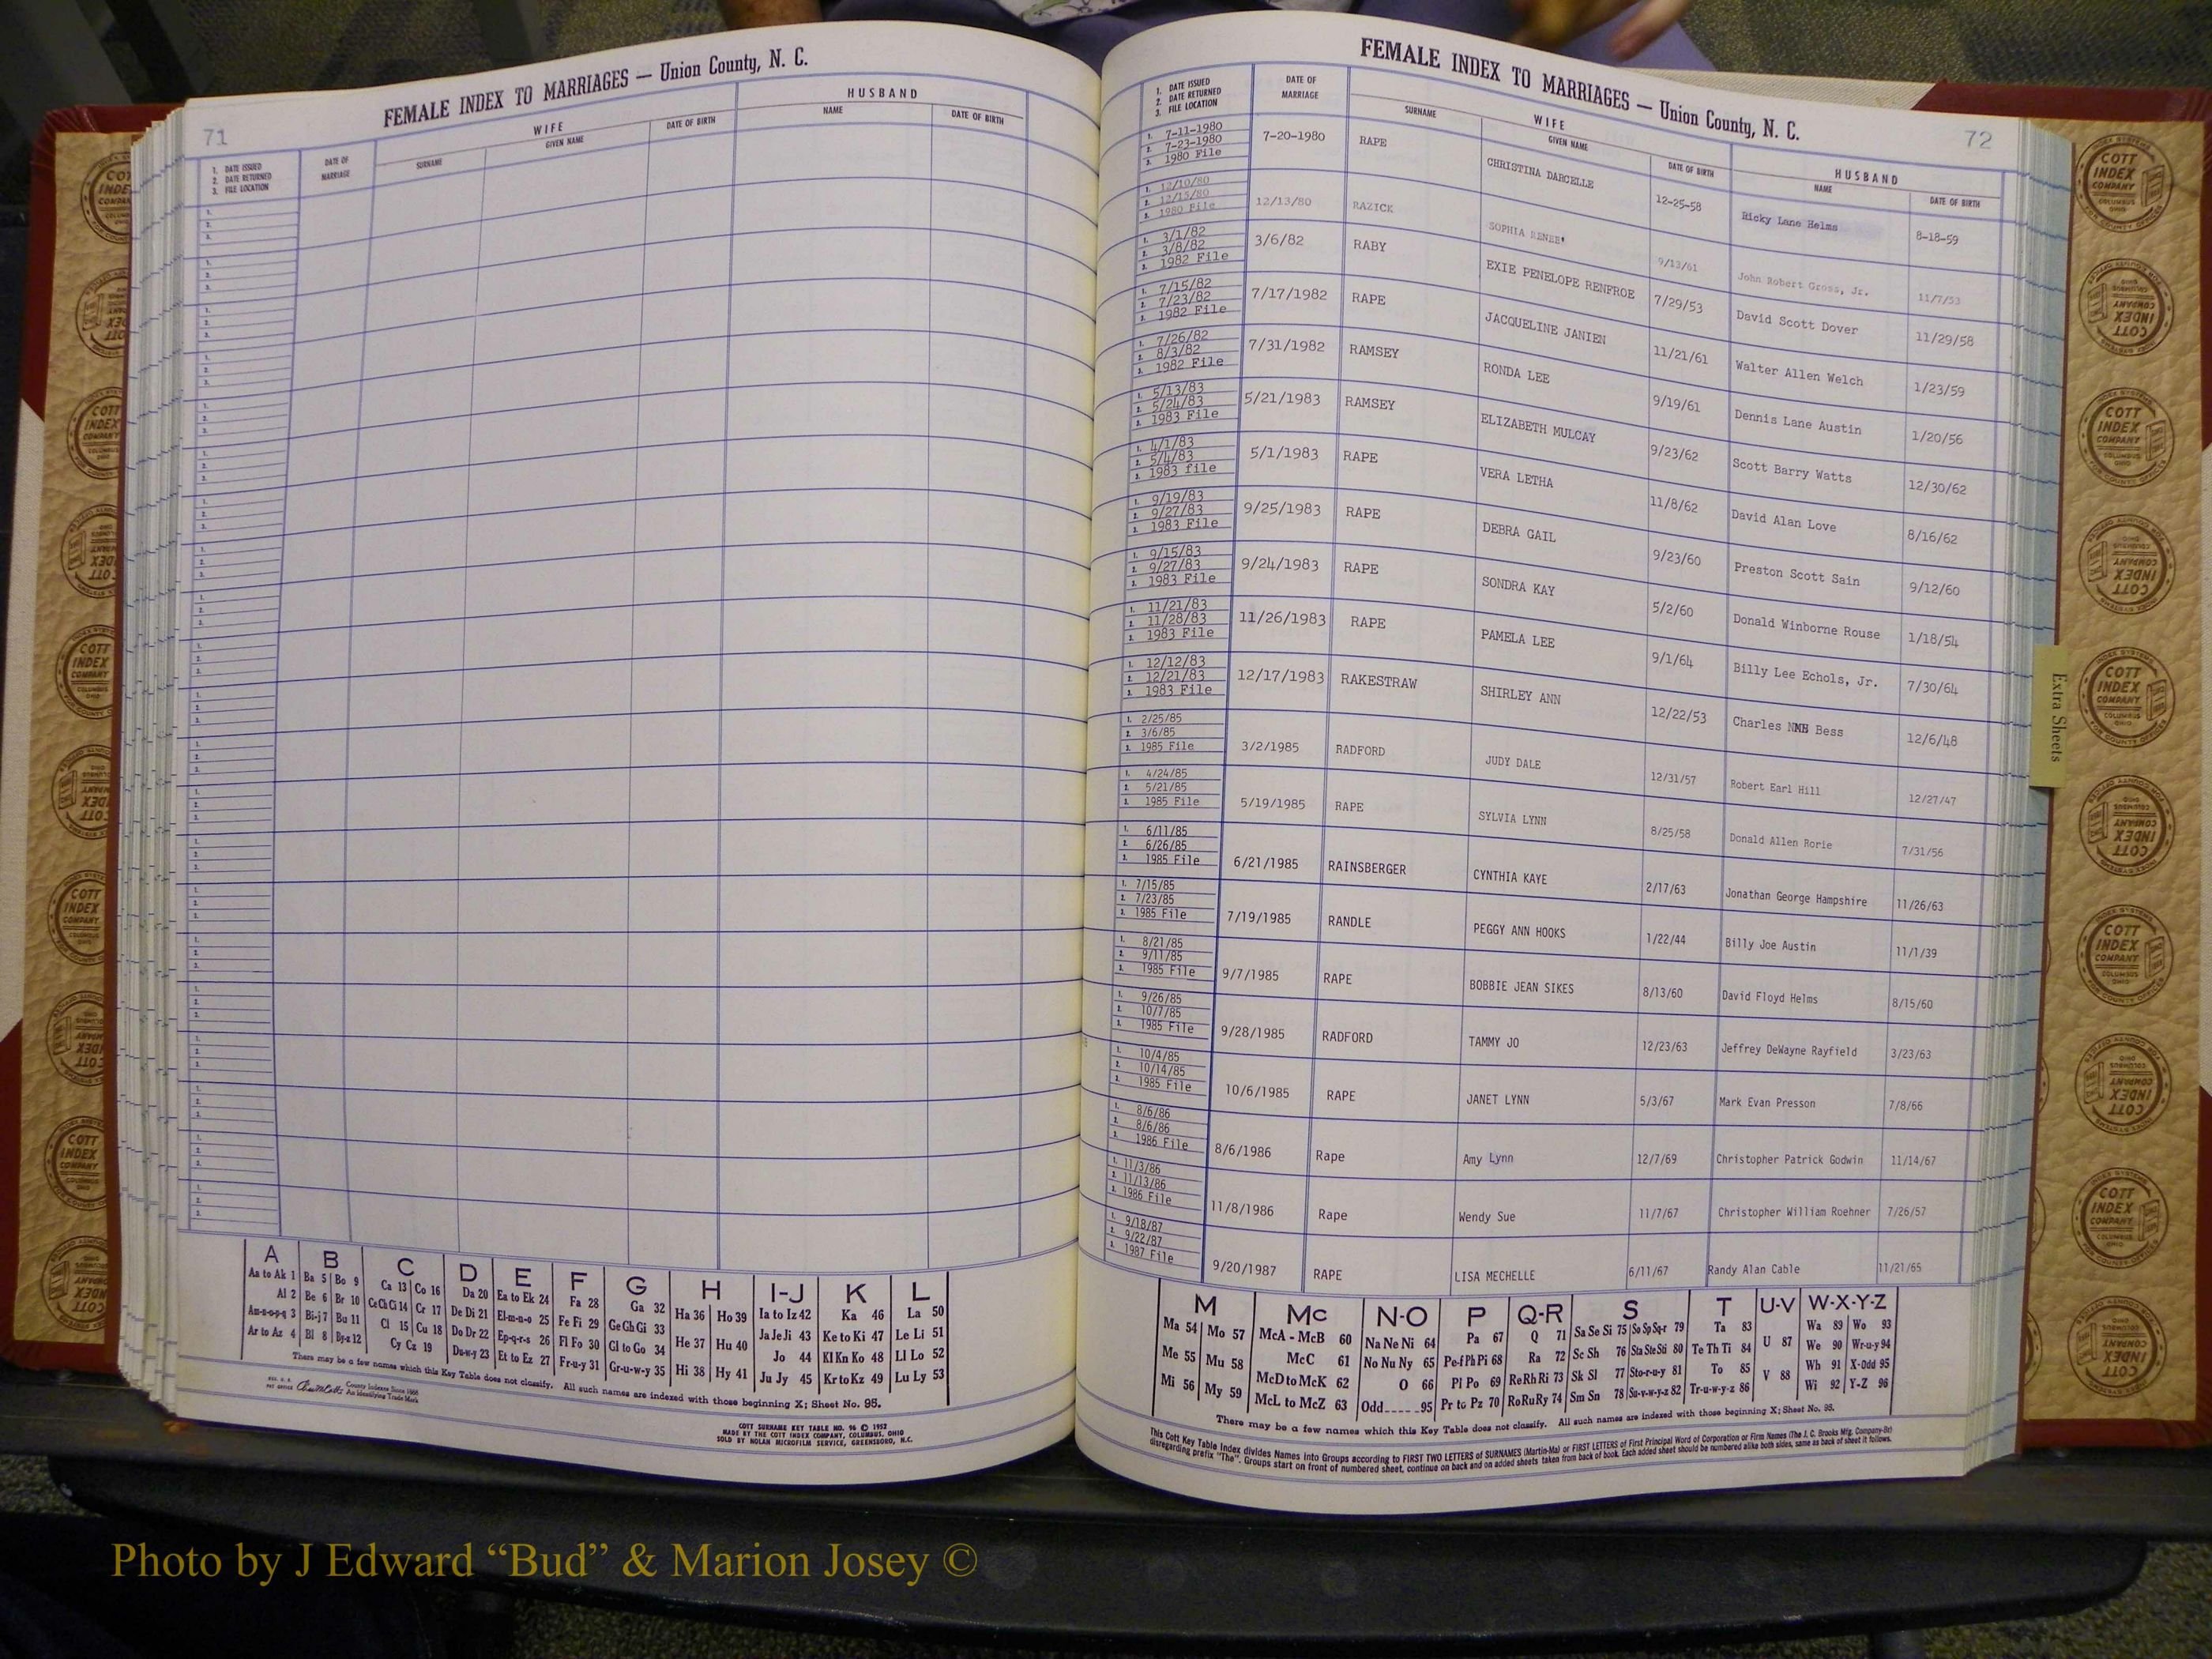 71
FEMALE INDEX TO MARRIAGES — Union County, N. C.
1. DATE ISSUED
2. DATE RETURNED
3. FILE LOCATION
DATE OF MARRIAGE
WIFE
SURNAME GIVEN NAME DATE OF BIRTH
HUSBAND
NAME DATE OF BIRTH
A B C D E F G H I-J K L
Aa to Ak 1 Ba 5 Bo 9 Ca 13 Co 16 Da 20 Ea to Ek 24 Fa 28 Ga 32 Ha 36 Ho 39 Ia to Iz 42 Ka 46 La 50
Al 2 Be 6 Br 10 Ce Ch Ci 14 Cr 17 De Di 21 El-m-n-o 25 Fe Fi 29 Ge Gh Gi 33 He 37 Hu 40 Ja Je Ji 43 Ke to Ki 47 Le Li 51
Am-n-o-p-q 3 Bi-j 7 Bu 11 Cl 15 Cu 18 Do Dr 22 Ep-q-r-s 26 Fl Fo 30 Gl to Go 34 Hi 38 Hy 41 Jo 44 Kl Kn Ko 48 Ll Lo 52
Ar to Az 4 Bl 8 By-z 12 Cy Cz 19 Du-w-y 23 Et to Ez 27 Fr-u-y 31 Gr-u-w-y 35 Ju Jy 45 Kr to Kz 49 Lu Ly 53
There may be a few names which this Key Table does not classify. All such names are indexed with those beginning X; Sheet No. 95.
County Indexes Since 1888
An Identifying Trade Mark
COTT SURNAME KEY TABLE NO. 96 © 1952
MADE BY THE COTT INDEX COMPANY, COLUMBUS, OHIO
SOLD BY NOLAN MICROFILM SERVICE, GREENSBORO, N.C.
FEMALE INDEX TO MARRIAGES — Union County, N. C.
72
1. DATE ISSUED
2. DATE RETURNED
3. FILE LOCATION
DATE OF MARRIAGE
WIFE
SURNAME GIVEN NAME DATE OF BIRTH
HUSBAND
NAME DATE OF BIRTH
1. 7-11-1980
2. 7-23-1980
3. 1980 File
7-20-1980 RAPE CHRISTINA DARCELLE 12-25-58 Ricky Lane Helms 8-18-59
1. 12/10/80
2. 12/15/80
3. 1980 File
12/13/80 RAZICK SOPHIA RENEE' 9/13/61 John Robert Gross, Jr. 11/7/53
1. 3/1/82
2. 3/8/82
3. 1982 File
3/6/82 RABY EXIE PENELOPE RENFROE 7/29/53 David Scott Dover 11/29/58
1. 7/15/82
2. 7/23/82
3. 1982 File
7/17/1982 RAPE JACQUELINE JANIEN 11/21/61 Walter Allen Welch 1/23/59
1. 7/26/82
2. 8/3/82
3. 1982 File
7/31/1982 RAMSEY RONDA LEE 9/19/61 Dennis Lane Austin 1/20/56
1. 5/13/83
2. 5/24/83
3. 1983 File
5/21/1983 RAMSEY ELIZABETH MULCAY 9/23/62 Scott Barry Watts 12/30/62
1. 4/1/83
2. 5/4/83
3. 1983 file
5/1/1983 RAPE VERA LETHA 11/8/62 David Alan Love 8/16/62
1. 9/19/83
2. 9/27/83
3. 1983 File
9/25/1983 RAPE DEBRA GAIL 9/23/60 Preston Scott Sain 9/12/60
1. 9/15/83
2. 9/27/83
3. 1983 File
9/24/1983 RAPE SONDRA KAY 5/2/60 Donald Winborne Rouse 1/18/54
1. 11/21/83
2. 11/28/83
3. 1983 File
11/26/1983 RAPE PAMELA LEE 9/1/64 Billy Lee Echols, Jr. 7/30/64
1. 12/12/83
2. 12/21/83
3. 1983 File
12/17/1983 RAKESTRAW SHIRLEY ANN 12/22/53 Charles NMN Bess 12/6/48
1. 2/25/85
2. 3/6/85
3. 1985 File
3/2/1985 RADFORD JUDY DALE 12/31/57 Robert Earl Hill 12/27/47
1. 4/24/85
2. 5/21/85
3. 1985 File
5/19/1985 RAPE SYLVIA LYNN 8/25/58 Donald Allen Rorie 7/31/56
1. 6/11/85
2. 6/26/85
3. 1985 File
6/21/1985 RAINSBERGER CYNTHIA KAYE 2/17/63 Jonathan George Hampshire 11/26/63
1. 7/15/85
2. 7/23/85
3. 1985 File
7/19/1985 RANDLE PEGGY ANN HOOKS 1/22/44 Billy Joe Austin 11/1/39
1. 8/21/85
2. 9/11/85
3. 1985 File
9/7/1985 RAPE BOBBIE JEAN SIKES 8/13/60 David Floyd Helms 8/15/60
1. 9/26/85
2. 10/7/85
3. 1985 File
9/28/1985 RADFORD TAMMY JO 12/23/63 Jeffrey DeWayne Rayfield 3/23/63
1. 10/4/85
2. 10/14/85
3. 1985 File
10/6/1985 RAPE JANET LYNN 5/3/67 Mark Evan Presson 7/8/66
1. 8/6/86
2. 8/6/86
3. 1986 File
8/6/1986 Rape Amy Lynn 12/7/69 Christopher Patrick Godwin 11/14/67
1. 11/3/86
2. 11/13/86
3. 1986 File
11/8/1986 Rape Wendy Sue 11/7/67 Christopher William Roehner 7/26/57
1. 9/18/87
2. 9/22/87
3. 1987 File
9/20/1987 RAPE LISA MECHELLE 6/11/67 Randy Alan Cable 11/21/65
M Mc N-O P Q-R S T U-V W-X-Y-Z
Ma 54 Mo 57 McA - McB 60 Na Ne Ni 64 Pa 67 Q 71 Sa Se Si 75 So Sp Sq-r 79 Ta 83 U 87 Wa 89 Wo 93
Me 55 Mu 58 McC 61 No Nu Ny 65 Pe-f Ph Pi 68 Ra 72 Sc Sh 76 Sta Ste Sti 80 Te Th Ti 84 V 88 We 90 Wr-u-y 94
Mi 56 My 59 McD to McK 62 O 66 Pl Po 69 Re Rh Ri 73 Sk Sl 77 Sto-r-u-y 81 To 85 Wh 91 X-Odd 95
McL to McZ 63 Odd-----95 Pr to Pz 70 Ro Ru Ry 74 Sm Sn 78 Su-v-w-y-z 82 Tr-u-w-y-z 86 Wi 92 Y-Z 96
There may be a few names which this Key Table does not classify. All such names are indexed with those beginning X; Sheet No. 95.
This Cott Key Table Index divides Names into Groups according to FIRST TWO LETTERS of SURNAMES (Martin-Ma) or FIRST LETTERS of First Principal Word of Corporation or Firm Names (The J. C. Brooks Mfg. Company-Br)
disregarding prefix "The". Groups start on front of numbered sheet, continue on back and on added sheets taken from back of book. Each added sheet should be numbered alike both sides, same as back of sheet it follows.
Extra Sheets
COTT INDEX COMPANY COLUMBUS OHIO
Photo by J Edward “Bud” & Marion Josey ©